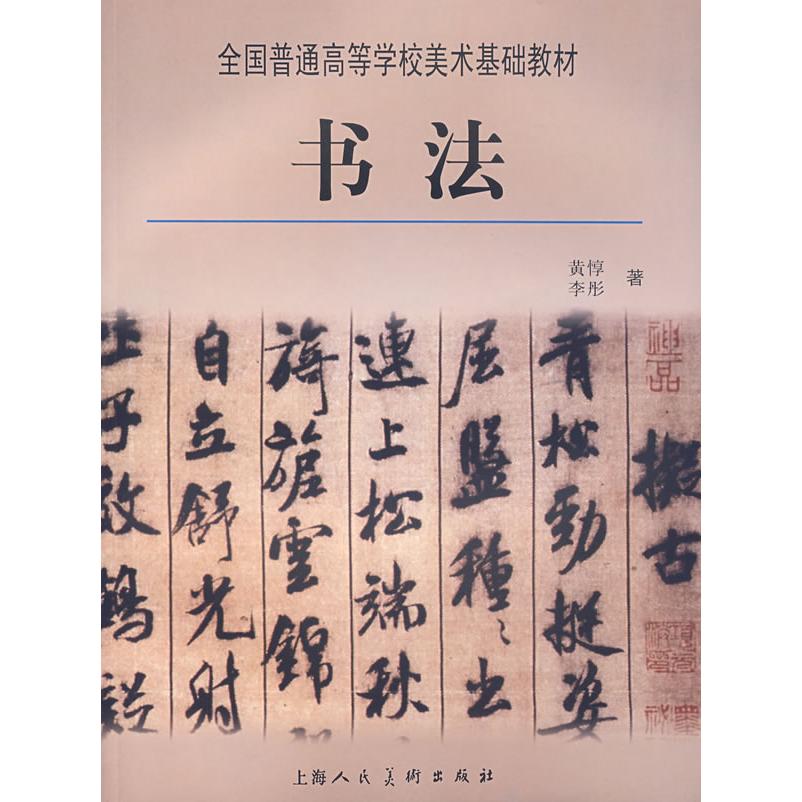 全国普通高等学校美术基础教材
书法
黄惇
李彤
著
擬古
青松勁挺姿
屈盤種〻出
連上松端秋
旖旎雲錦
自立舒光射
子效鶴疑
神品
上海人民美術出版社